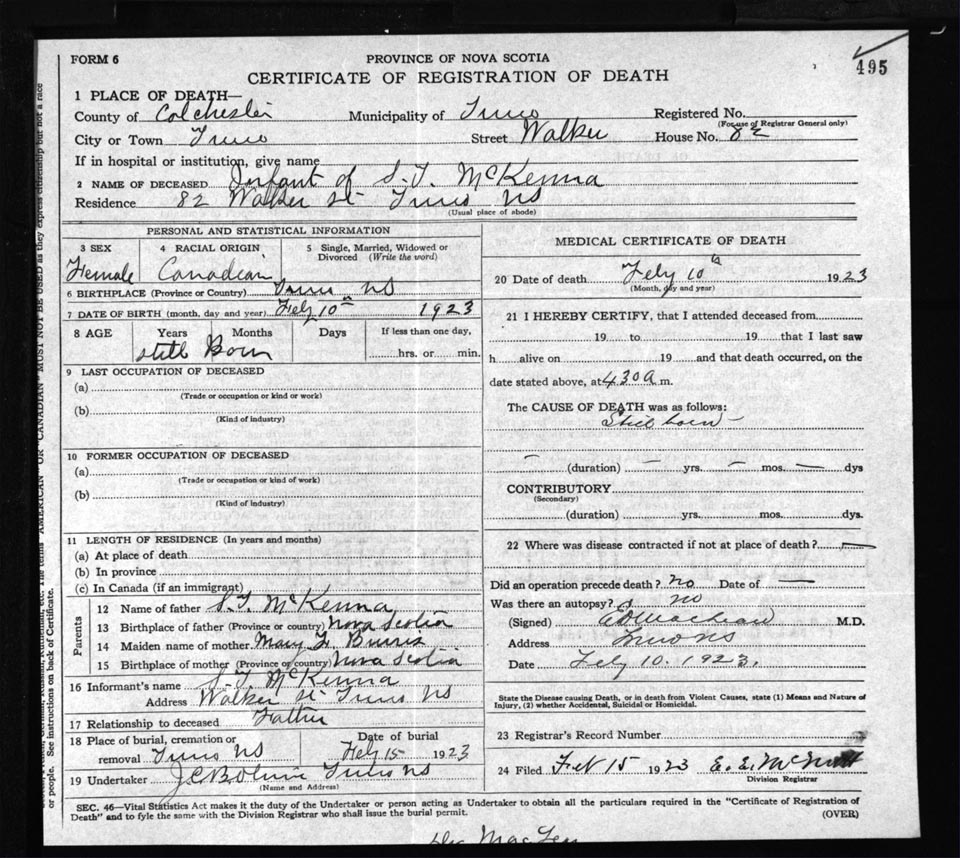 FORM 6
PROVINCE OF NOVA SCOTIA
495
CERTIFICATE OF REGISTRATION OF DEATH
1 PLACE OF DEATH—
County of Colchester Municipality of Truro Registered No.
(For use of Registrar General only)
City or Town Truro Street Walker House No. 82
If in hospital or institution, give name
2 NAME OF DECEASED Infant of S. T. McKenna
Residence 82 Walker St Truro NS
(Usual place of abode)
PERSONAL AND STATISTICAL INFORMATION
3 SEX 4 RACIAL ORIGIN 5 Single, Married, Widowed or Divorced (Write the word)
Female Canadian
6 BIRTHPLACE (Province or Country) Truro NS
7 DATE OF BIRTH (month, day and year) Feby 10th 1923
8 AGE Years Months Days If less than one day,
Still Born hrs. or min.
9 LAST OCCUPATION OF DECEASED
(a)
(Trade or occupation or kind or work)
(b)
(Kind of industry)
10 FORMER OCCUPATION OF DECEASED
(a)
(Trade or occupation or kind of work)
(b)
(Kind of industry)
11 LENGTH OF RESIDENCE (In years and months)
(a) At place of death
(b) In province
(c) In Canada (if an immigrant)
Parents
12 Name of father S. T. McKenna
13 Birthplace of father (Province or country) Nova Scotia
14 Maiden name of mother Mary Burris
15 Birthplace of mother (Province or country) Nova Scotia
16 Informant's name S. T. McKenna
Address Walker St Truro NS
17 Relationship to deceased Father
18 Place of burial, cremation or removal Truro NS Date of burial Feby 15 1923
19 Undertaker Truro NS
(Name and Address)
MEDICAL CERTIFICATE OF DEATH
20 Date of death Feby 10th 1923
(Month, day and year)
21 I HEREBY CERTIFY, that I attended deceased from
19 to 19 that I last saw
h alive on 19 and that death occurred, on the
date stated above, at 4 30 a m.
The CAUSE OF DEATH was as follows:
Still born —
— (duration) — yrs. — mos. — dys
CONTRIBUTORY
(Secondary)
(duration) yrs. mos. dys.
22 Where was disease contracted if not at place of death? —
Did an operation precede death? no Date of —
Was there an autopsy? no
(Signed) M.D.
Address Truro NS
Date Feby 10. 1923.
State the Disease causing Death, or in death from Violent Causes, state (1) Means and Nature of
Injury, (2) whether Accidental, Suicidal or Homicidal.
23 Registrar's Record Number
24 Filed Feb 15 1923 E. E. McNutt
Division Registrar
SEC. 46—Vital Statistics Act makes it the duty of the Undertaker or person acting as Undertaker to obtain all the particulars required in the "Certificate of Registration of
Death" and to fyle the same with the Division Registrar who shall issue the burial permit.
(OVER)